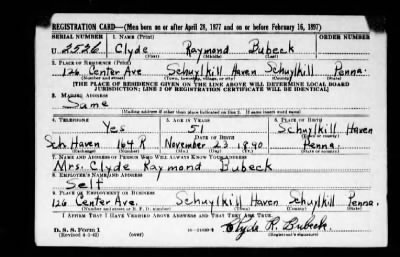 REGISTRATION CARD—(Men born on or after April 28, 1877 and on or before February 16, 1897)
SERIAL NUMBER 1. NAME (Print) ORDER NUMBER
U 2526 Clyde Raymond Bubeck
(First) (Middle) (Last)
2. PLACE OF RESIDENCE (Print)
126 Center Ave Schuylkill Haven Schuylkill Penna.
(Number and street) (Town, township, village, or city) (County) (State)
[THE PLACE OF RESIDENCE GIVEN ON THE LINE ABOVE WILL DETERMINE LOCAL BOARD
JURISDICTION; LINE 2 OF REGISTRATION CERTIFICATE WILL BE IDENTICAL]
3. MAILING ADDRESS
Same
[Mailing address if other than place indicated on line 2. If same insert word same]
4. TELEPHONE 5. AGE IN YEARS 6. PLACE OF BIRTH
Yes 51 Schuylkill Haven
DATE OF BIRTH (Town or county)
Sch. Haven 164 R November 23 1890 Penna.
(Exchange) (Number) (Mo.) (Day) (Yr.) (State or country)
7. NAME AND ADDRESS OF PERSON WHO WILL ALWAYS KNOW YOUR ADDRESS
Mrs. Clyde Raymond Bubeck
8. EMPLOYER'S NAME AND ADDRESS
Self
9. PLACE OF EMPLOYMENT OR BUSINESS
126 Center Ave. Schuylkill Haven Schuylkill Penna.
(Number and street or R. F. D. number) (Town) (County) (State)
I AFFIRM THAT I HAVE VERIFIED ABOVE ANSWERS AND THAT THEY ARE TRUE.
D. S. S. Form 1 Clyde R. Bubeck
(Revised 4-1-42) (over) (Registrant's signature)